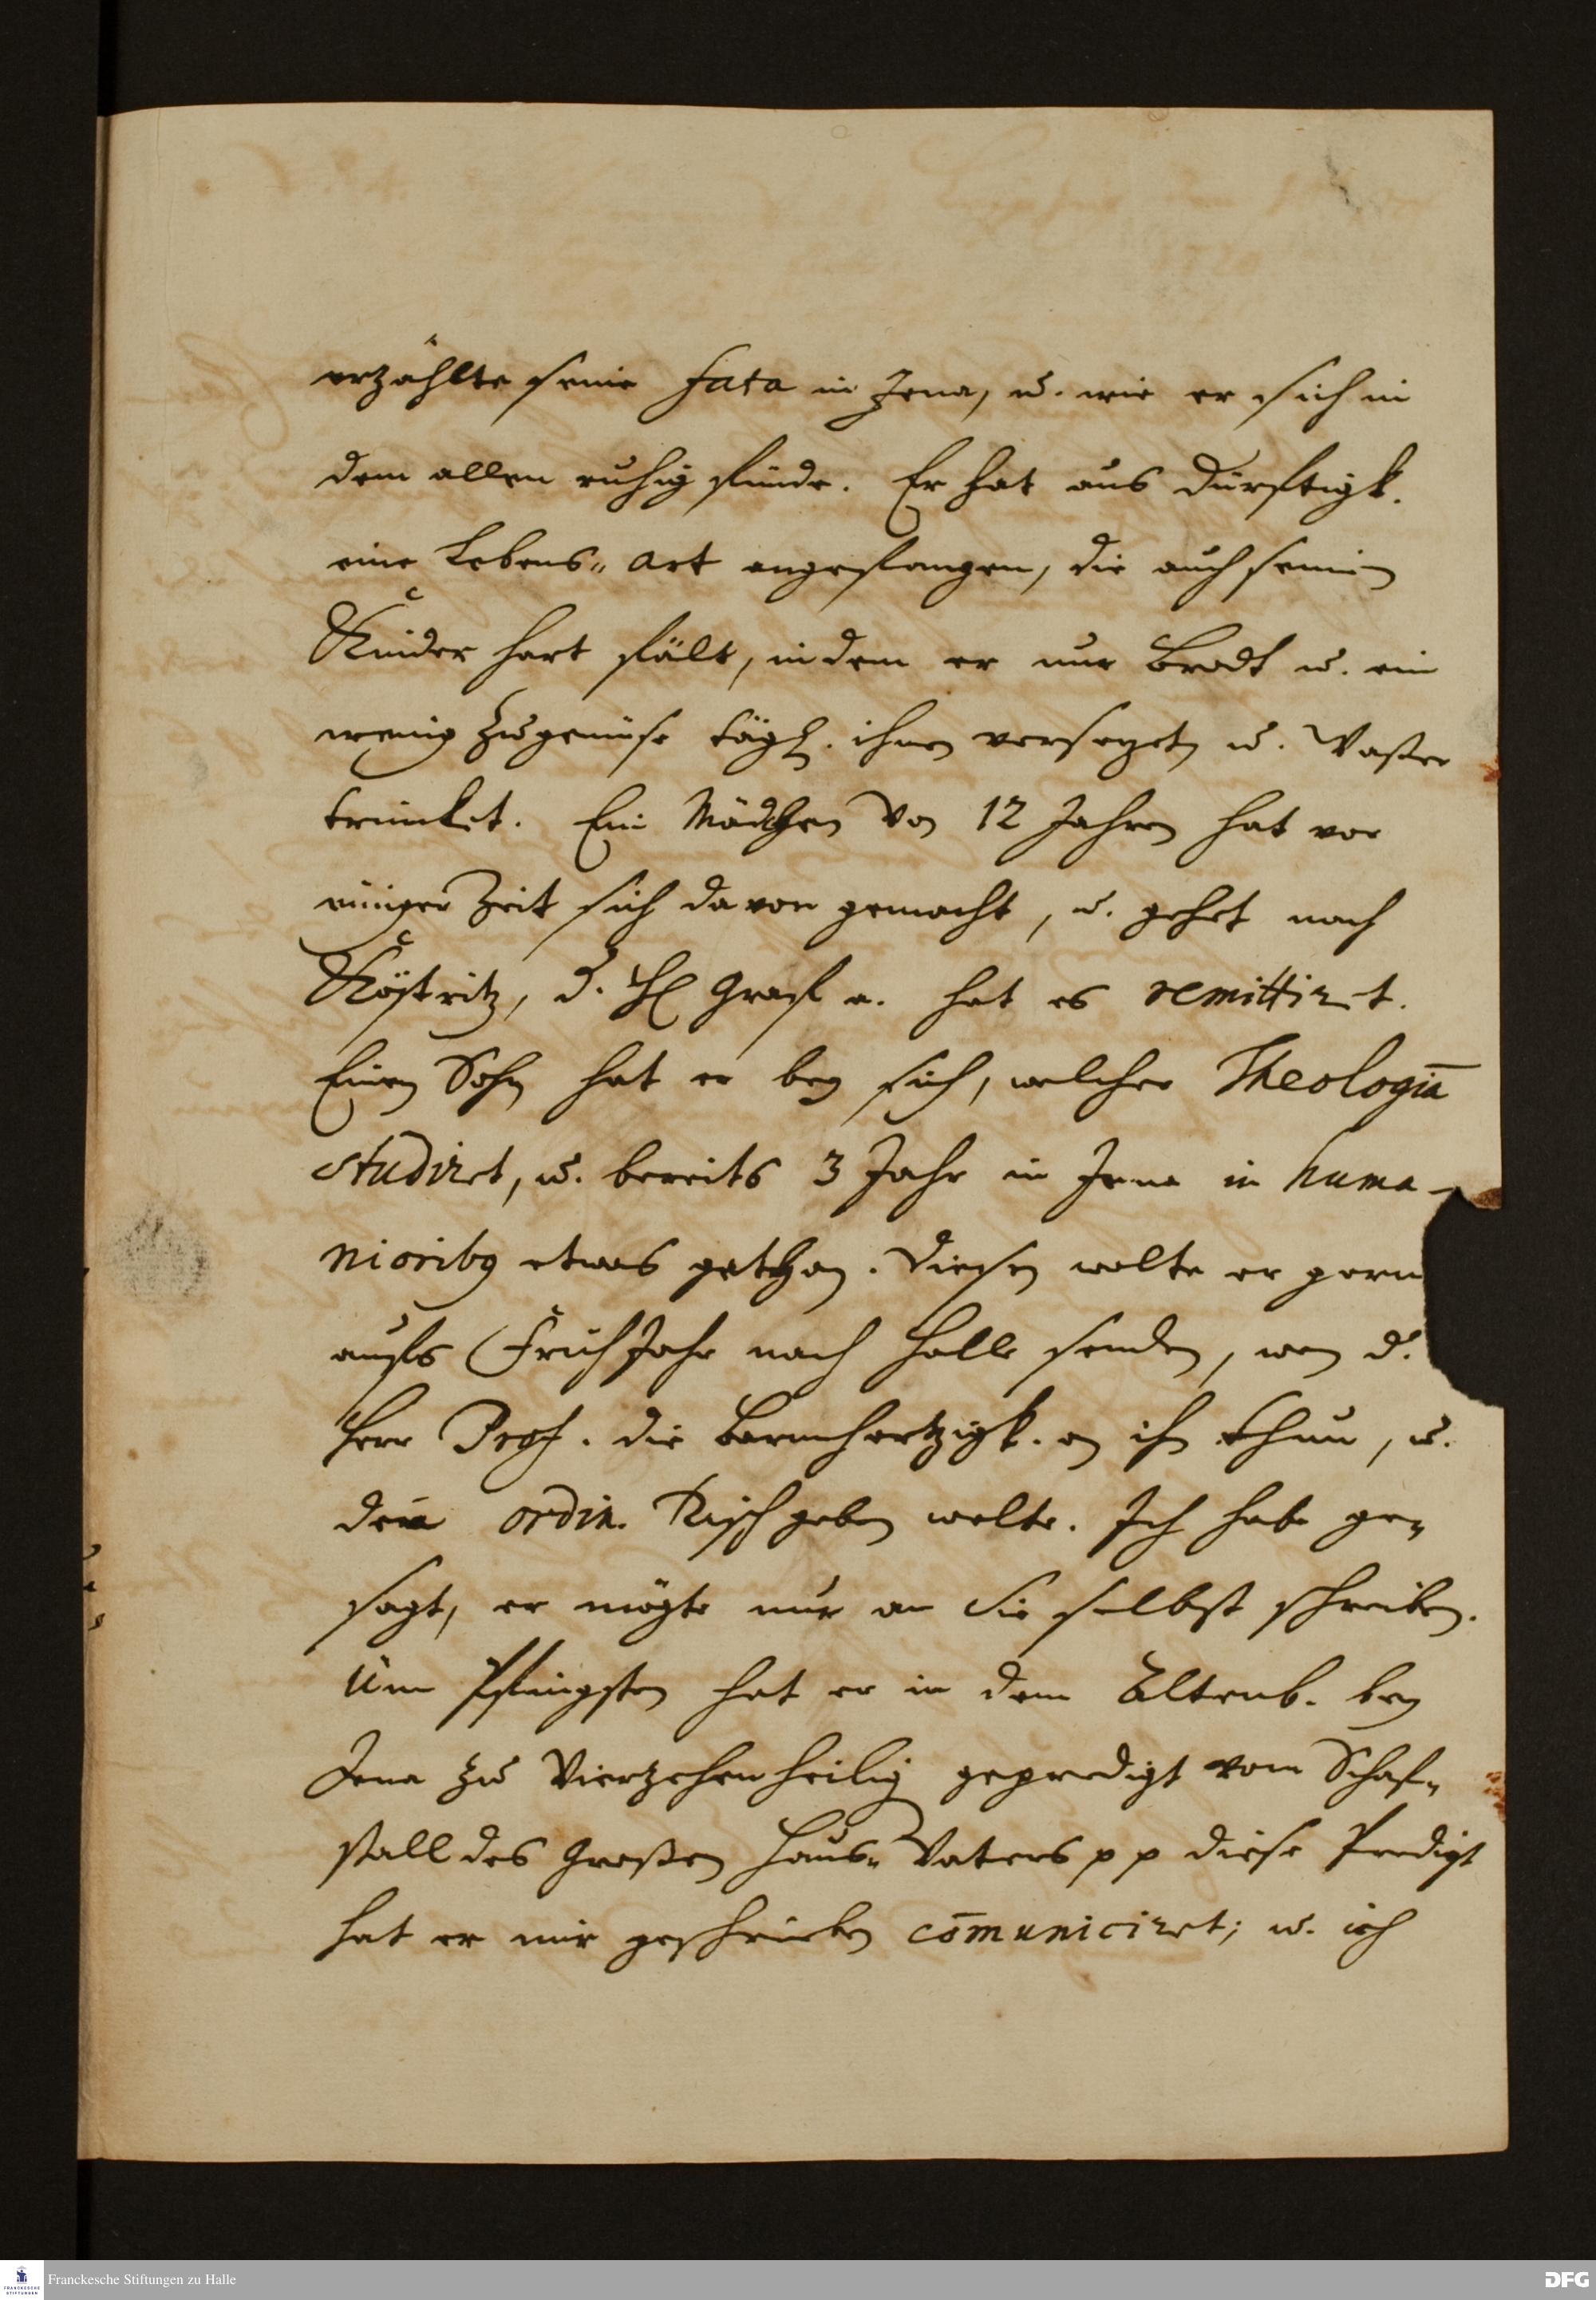 erzählte seine Fata in Jena, u. wie er sich in
dem allen ruhig finde. Er hat aus Dürftigk.
eine Lebens-Art angefangen, die auch seinen
Kinder hart fält, indem er nur Brodt u. ein
wenig Zugemüse tägl. ihnen vorsetzet, u. Waßer
trinket. Ein Mädchen von 12 Jahren hat vor
einiger Zeit sich davon gemacht, u. gehet nach
Köstritz, d. H. Graf a. hat es remittiret.
Einen Sohn hat er bey sich, welcher Theologiā
studiret, u. bereits 3 Jahr in Jena in huma-
nioribg etwas gethan. Diesen wolte er gern
aufs Früh Jahr nach Halle senden, wen d.
Herr Prof. die Barmhertzigk. an ihm thun, u.
den ordin. Tisch geben wolte. Ich habe ge-
sagt, er mögte nur an Sie selbst schreiben.
Um Pfingsten hat er in dem Altenb. bey
Jena zu Viertzehenheilig gepredigt vom Schaf-
stall des Großen Haus-Vaters pp diese Predigt
hat er mir geschrieben com̄uniciret; u. ich
Franckesche Stiftungen zu Halle
DFG